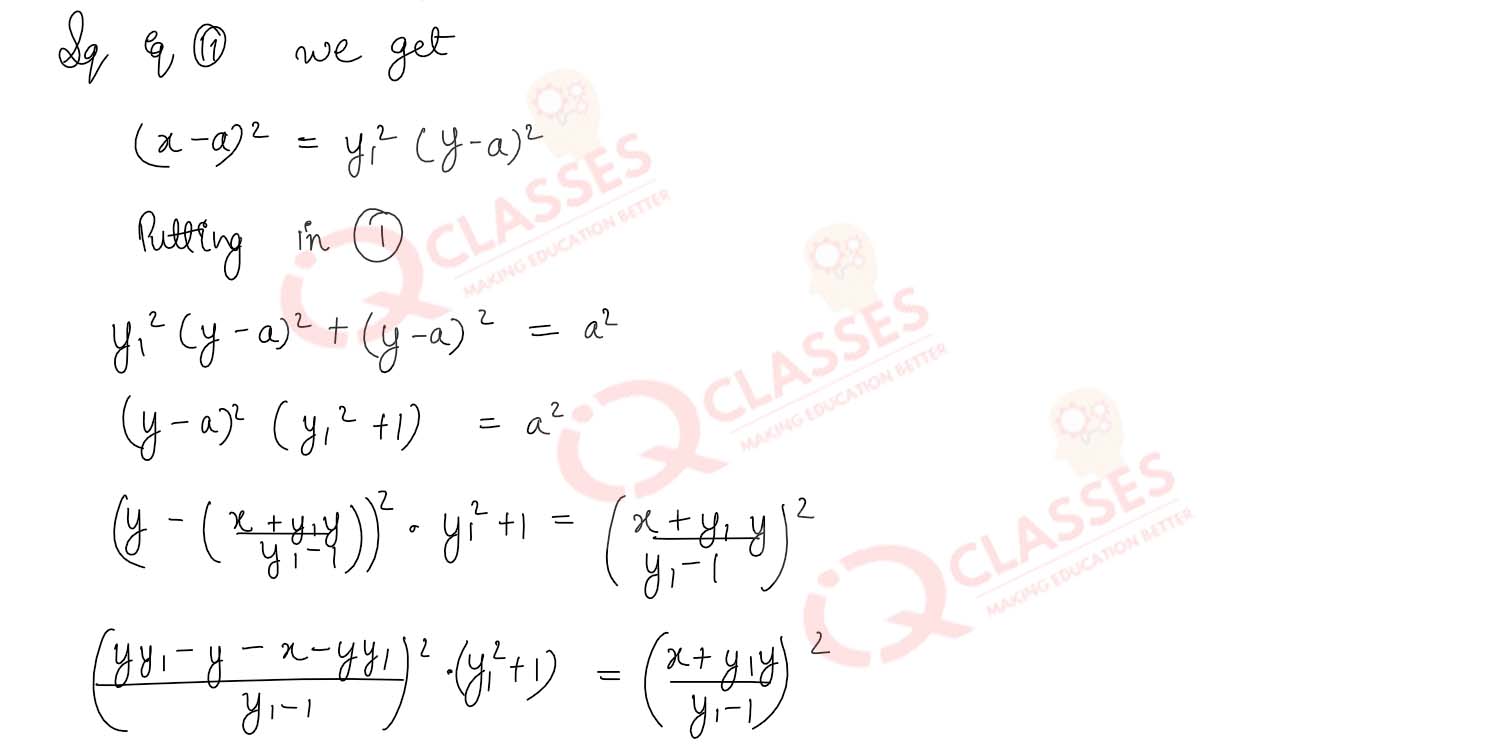 Sq Eq (11) we get
(x - a)² = y₁² (y - a)²
Putting in (1)
y₁² (y - a)² + (y - a)² = a²
(y - a)² (y₁² + 1) = a²
(y - ((x + y₁y)/(y₁ - 1)))² · y₁² + 1 = ((x + y₁ y)/(y₁ - 1))²
((yy₁ - y - x - yy₁)/(y₁ - 1))² · (y₁² + 1) = ((x + y₁y)/(y₁ - 1))²
iQ CLASSES
MAKING EDUCATION BETTER
iQ CLASSES
MAKING EDUCATION BETTER
iQ CLASSES
MAKING EDUCATION BETTER